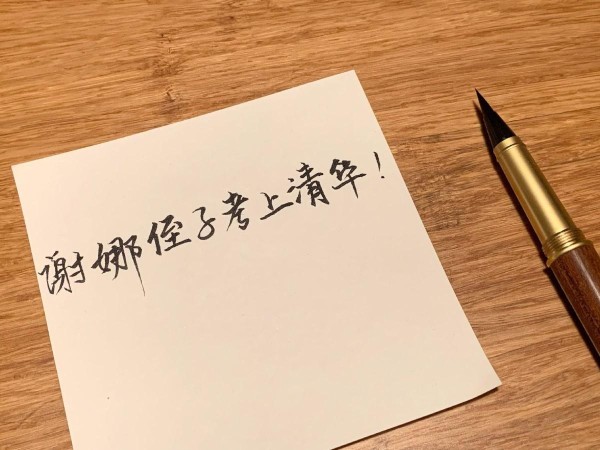 谢娜侄子考上清华！